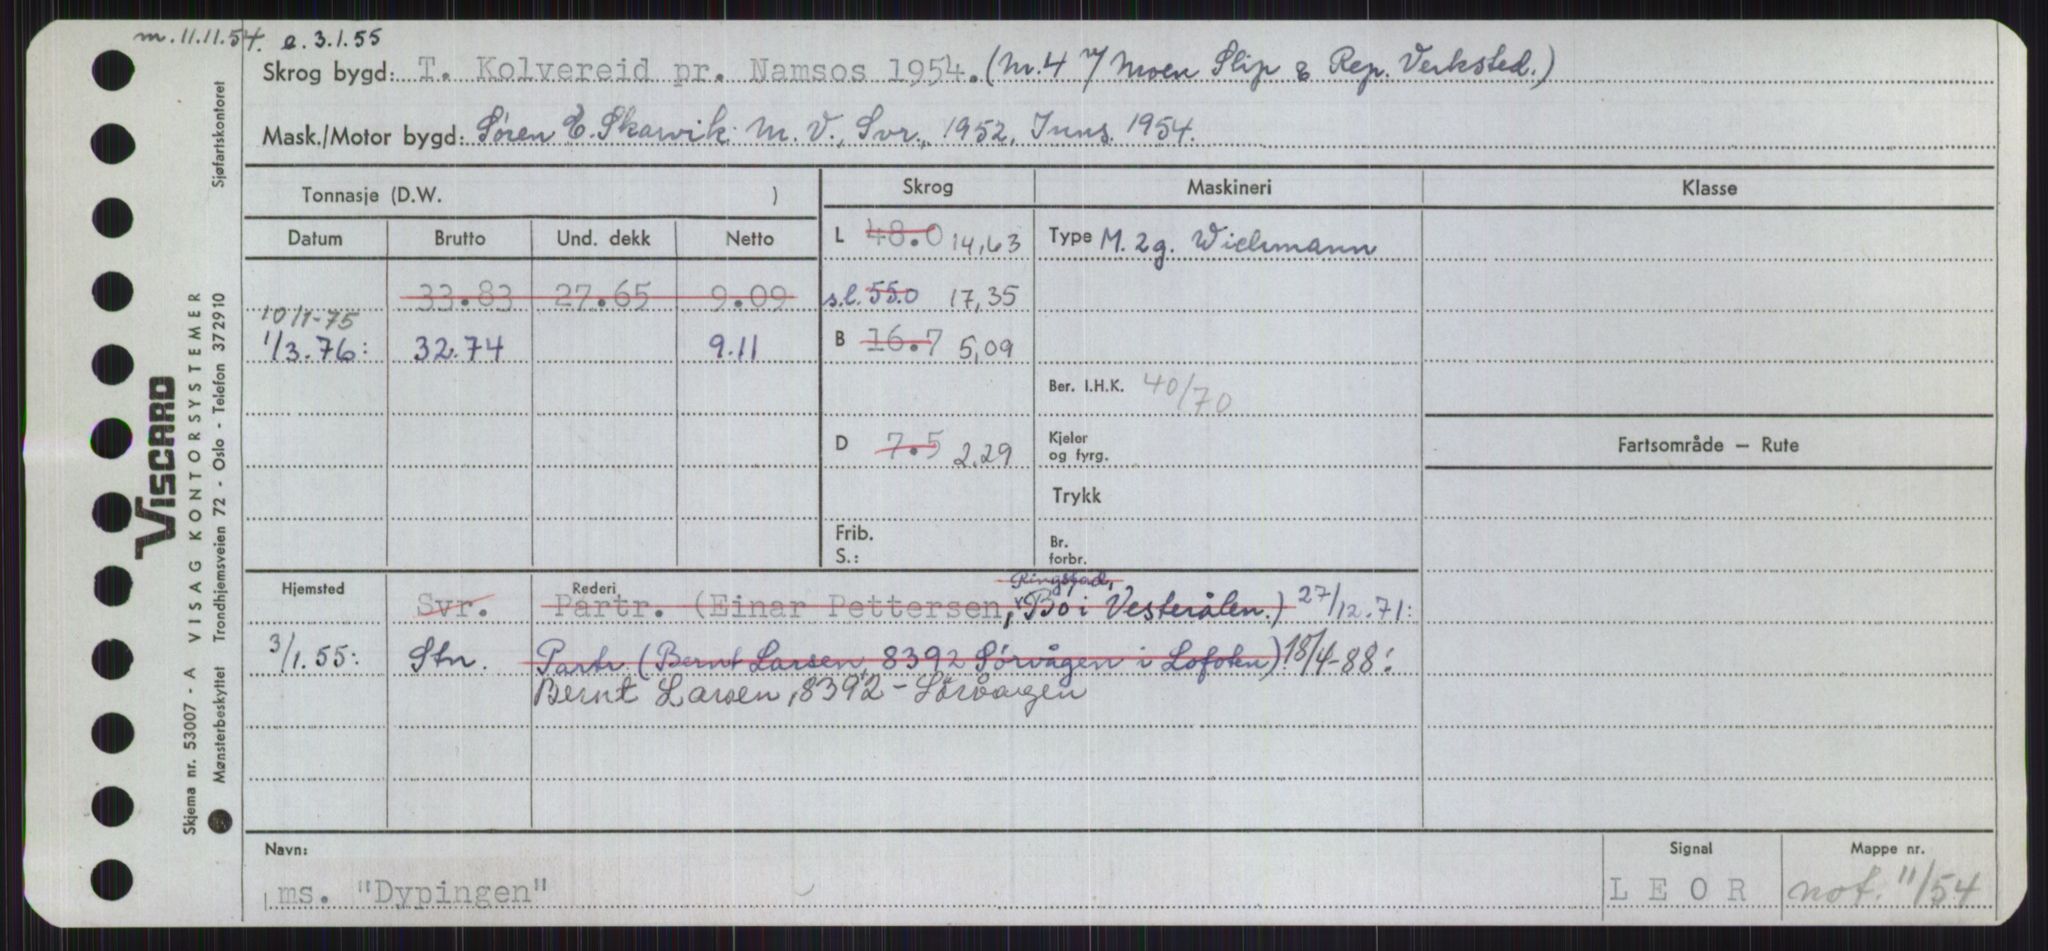 m. 11.11.54. e. 3.1.55
Skrog bygd: T. Kolvereid pr. Namsos 1954. (Nr. 4 v/ Moen Slip & Rep. Verksted.)
Mask./Motor bygd: Søren E. Skarvik M. V., Svr., 1952, Inns. 1954.
Tonnasje (D.W. )
Skrog
Maskineri
Klasse
Datum Brutto Und. dekk Netto
L 48.0 14,63
Type M. 2g. Wichmann
33.83 27.65 9.09
s.l. 55.0 17,35
10/1-75
1/3.76: 32.74 9.11
B 16.7 5,09
Ber. I.H.K. 40/70
D 7.5 2,29
Kjeler
og fyrg.
Fartsområde — Rute
Trykk
Frib.
S.:
Br.
forbr.
Hjemsted
Rederi
Ringstad,
Svr. Partr. (Einar Pettersen, Bo i Vesterålen.) 27/12.71:
3/1.55: Stn. Partr. (Bernt Larsen, 8392 Sörvågen i Lofoten) 18/4-88:
Bernt Larsen, 8392 - Sörvågen
Navn:
ms. "Dypingen"
Signal
L E O R
Mappe nr.
not. 11/54
Viscard
VISAG KONTORSYSTEMER
Skjema nr. 53007 - A
Mønsterbeskyttet Trondhjemsveien 72 - Oslo - Telefon 372910
Sjøfartskontoret